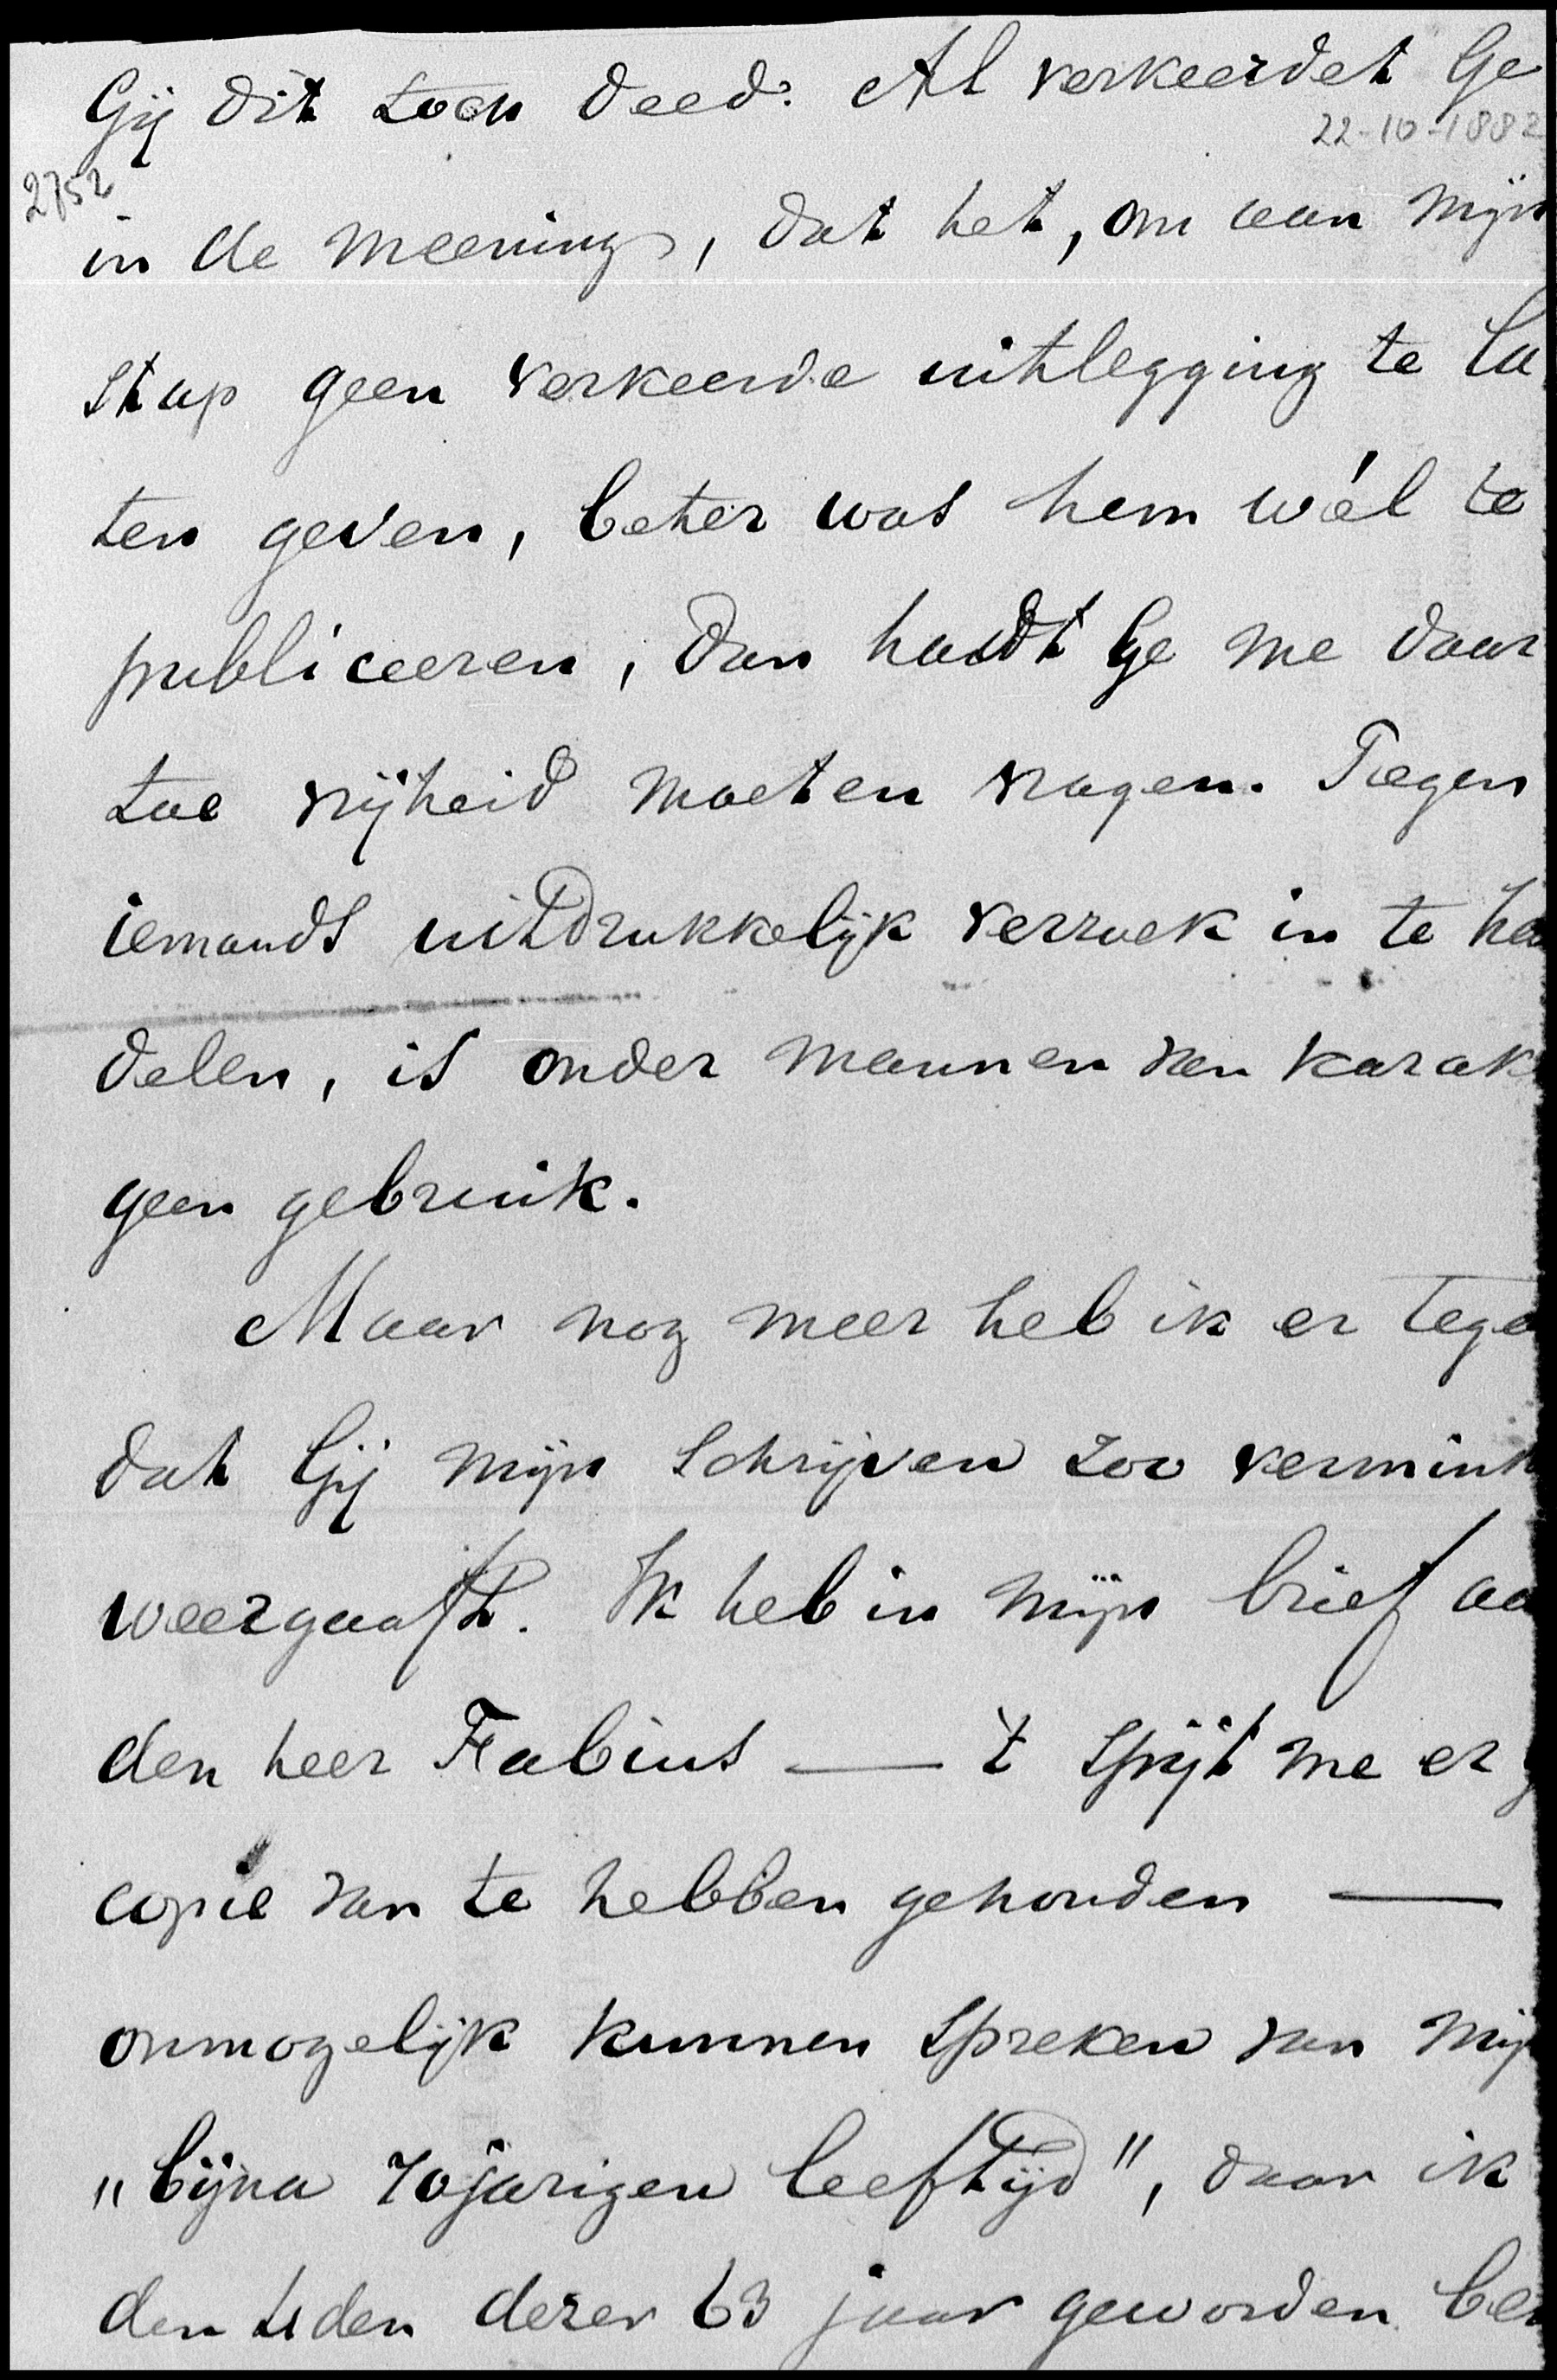 Gij dit toch deed. Al verkeerdet Ge
22-10-1882
2752
in de meening, dat het, om aan mijn
stap geen verkeerde uitlegging te la
ten geven, beter was hem wél te
publiceeren, dan hadt Ge me daar
toe vrijheid moeten vragen. Tegen
iemands uitdrukkelijk verzoek in te ha
delen, is onder mannen van karak
geen gebruik.
Maar nog meer heb ik er tege
dat Gij mijn schrijven zoo vermink
weergaaft. Ik heb in mijn brief aa
den heer Fabius — 't spijt me er g
copie van te hebben gehouden —
onmogelijk kunnen spreken van mij
„bijna 70jarigen leeftijd", daar ik
den den dezer 63 jaar geworden be